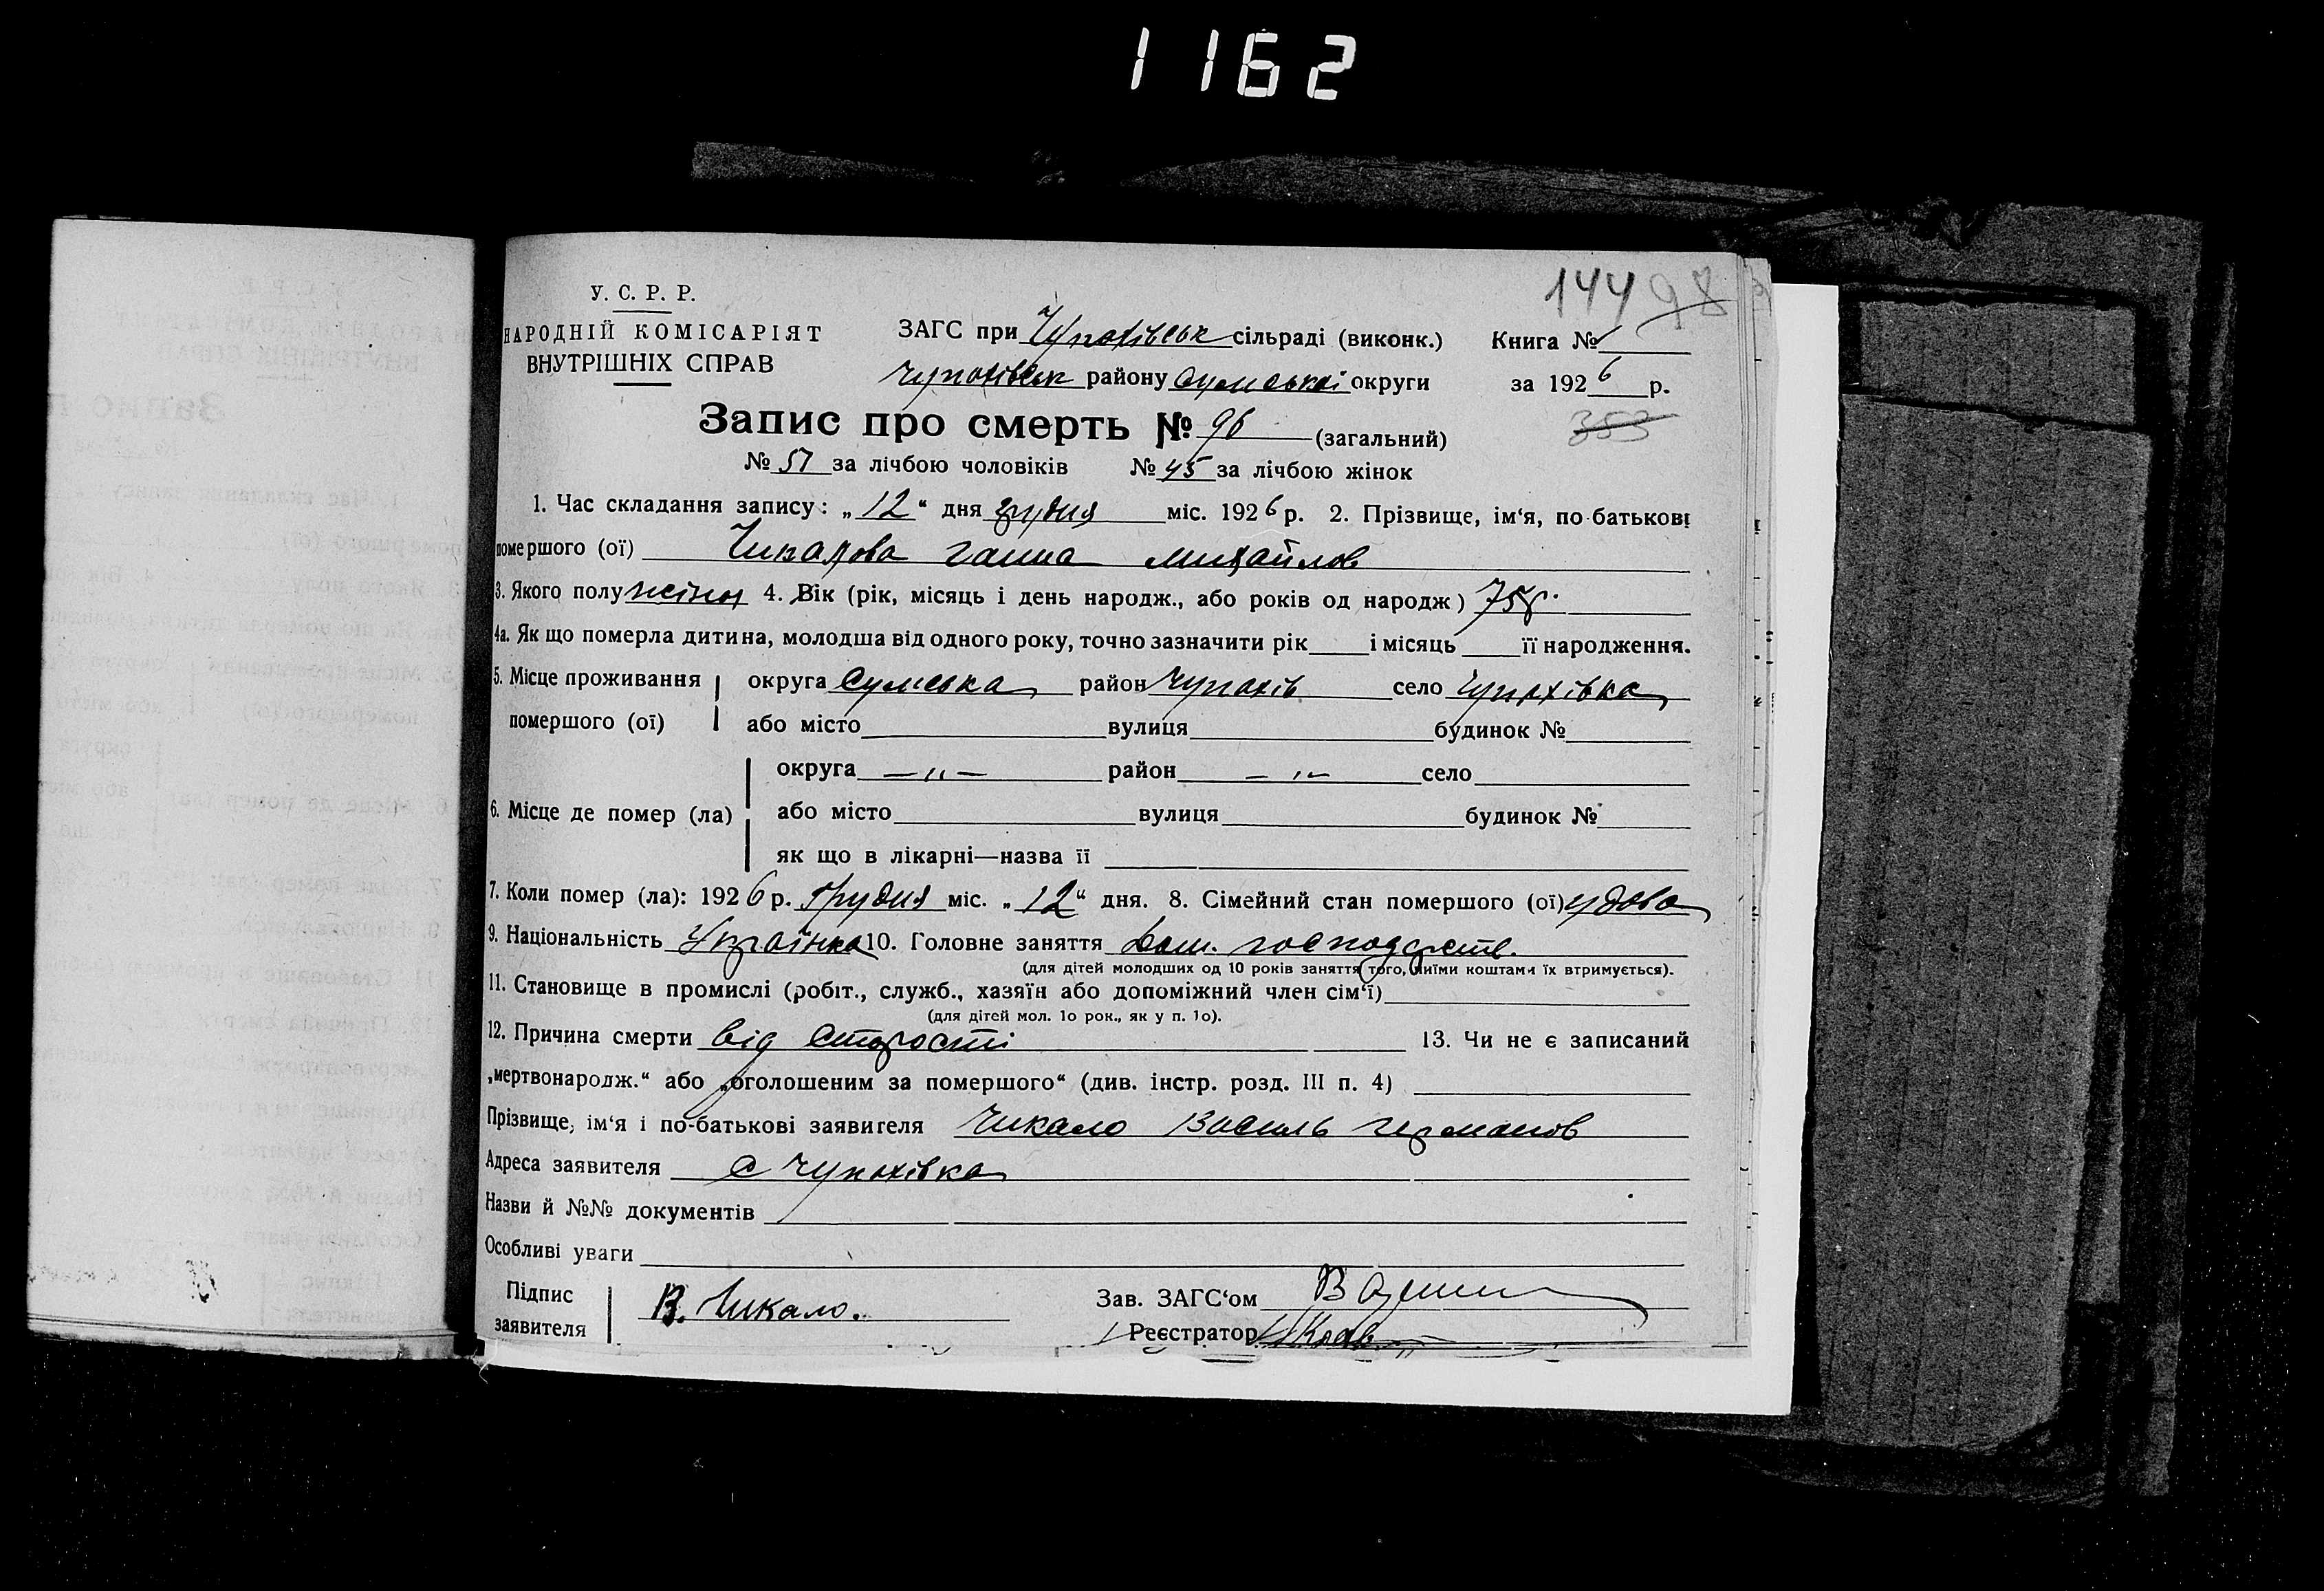 1162
144 98
У. С. Р. Р.
НАРОДНІЙ КОМІСАРІЯТ
ВНУТРІШНІХ СПРАВ
ЗАГС при Чупахівськ сільраді (виконк.) Книга № 1
Чупахівськ району Сумської округи за 1926 р.
Запис про смерть № 96 (загальний)
353
№ 51 за лічбою чоловіків № 45 за лічбою жінок
1. Час складання запису: „12“ дня грудня міс. 1926 р. 2. Прізвище, ім‘я, по-батькові
помершого (ої) Чикалова Ганна Михайлов
3. Якого полу жіноч 4. Вік (рік, місяць і день народж., або років од народж) 75 р.
4а. Як що померла дитина, молодша від одного року, точно зазначити рік і місяць її народження.
5. Місце проживання округа Сумська район Чупахів село Чупахівка
помершого (ої) або місто вулиця будинок №
округа —„— район —„— село
6. Місце де помер (ла) або місто вулиця будинок №
як що в лікарні—назва її
7. Коли помер (ла): 1926 р. Грудня міс. „12“ дня. 8. Сімейний стан помершого (ої) удова
9. Національність Українка 10. Головне заняття Дом. господарств.
(для дітей молодших од 10 років заняття того, чиїми коштами їх втримується).
11. Становище в промислі (робіт., служб., хазяїн або допоміжний член сім‘ї)
(для дітей мол. 1о рок., як у п. 1о).
12. Причина смерти від старості 13. Чи не є записаний
„мертвонародж.“ або „оголошеним за помершого“ (див. інстр. розд. III п. 4)
Прізвище, ім‘я і по-батькові заявителя Чикало Василь Германов
Адреса заявителя с Чупахівка
Назви й №№ документів
Особливі уваги
Підпис
заявителя В. Чикало.
Зав. ЗАГС‘ом
Реєстратор